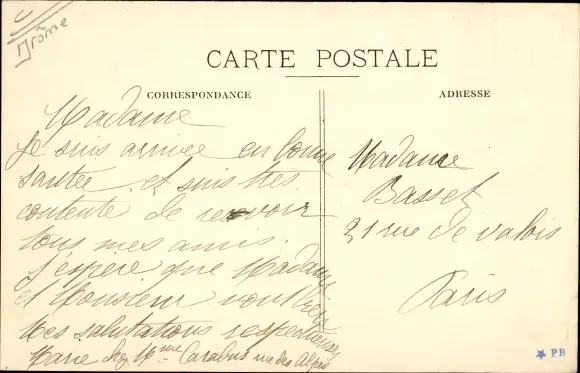 Drôme
CARTE POSTALE
CORRESPONDANCE
ADRESSE
Madame
Je suis arrivée en bonne
santée et suis très
contente de revoir
tous mes amis.
J'espère que Madame
et Monsieur vont bien
Mes salutations respectueuses
Marie chez Mme rue des Alpes
Madame
Basset
31 rue de valois
Paris
PB